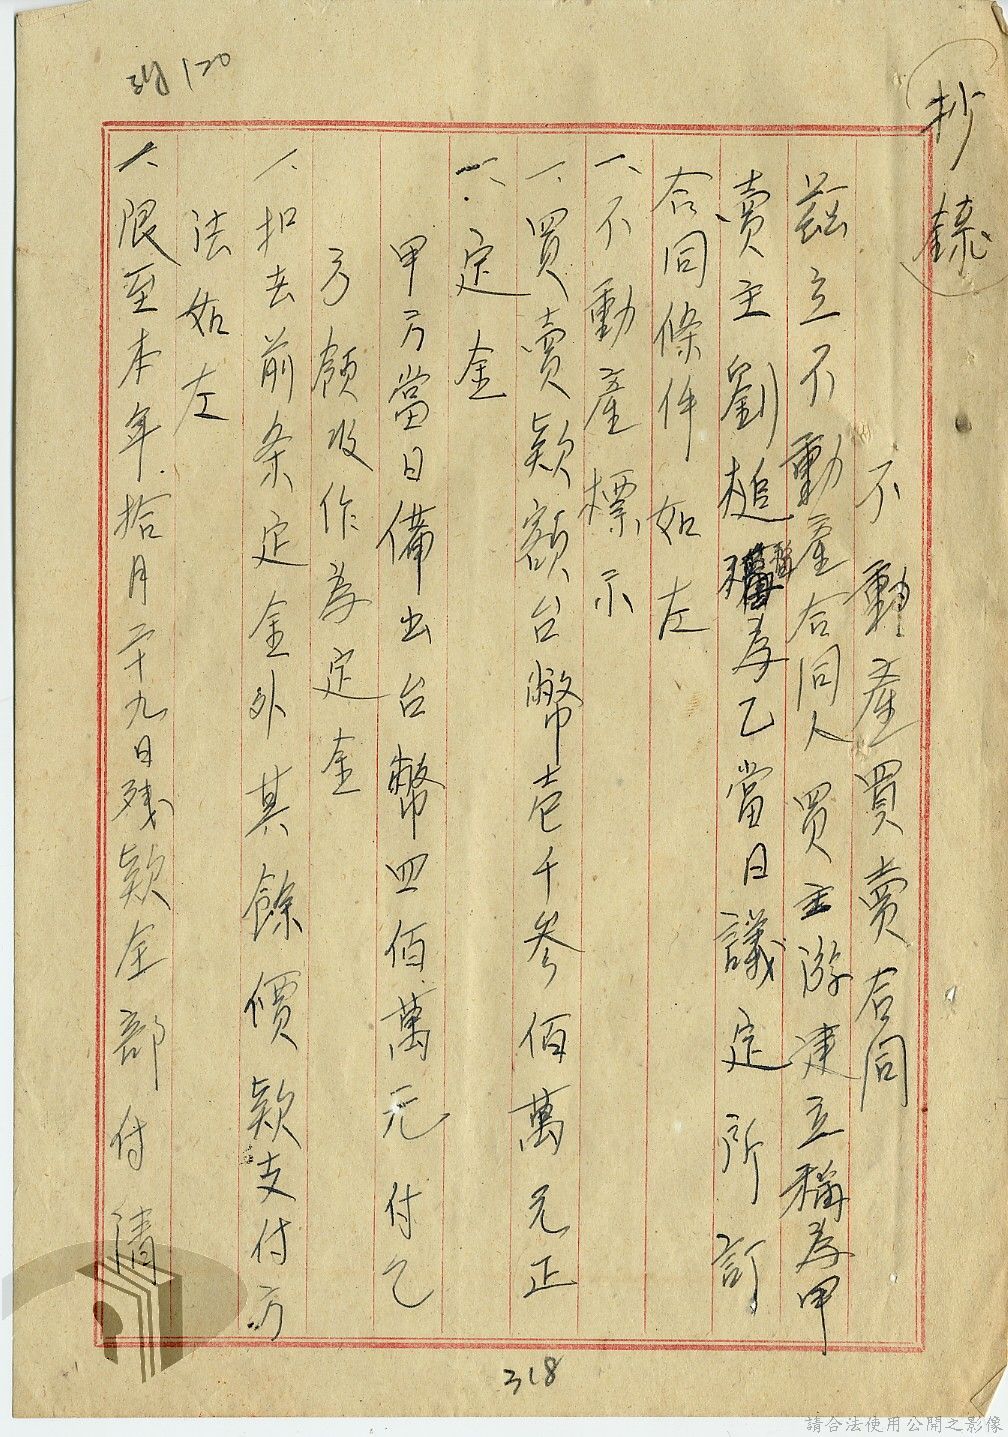 抄錄
不動產買賣合同
茲立不動產合同人買主游建立稱為甲
賣主劉趙稱為乙當日議定所訂
合同條件如左
一、不動產標示
一、買賣款額台幣壱千參佰萬元正
一、定金
甲方當日備出台幣四佰萬元付乙
方領收作為定金
一、扣去前条定金外其餘價款支付方
法如左
一、限至本年拾月二十九日残款全部付清
120
318
請合法使用公開之影像